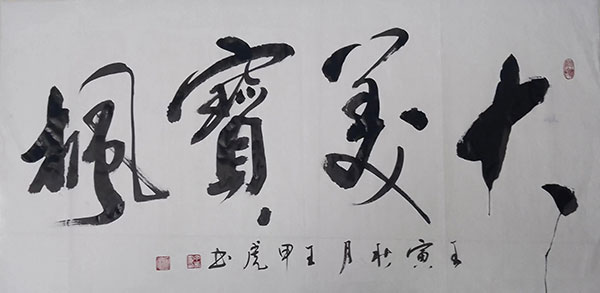 大美寳楓
壬寅秋月王甲虎书